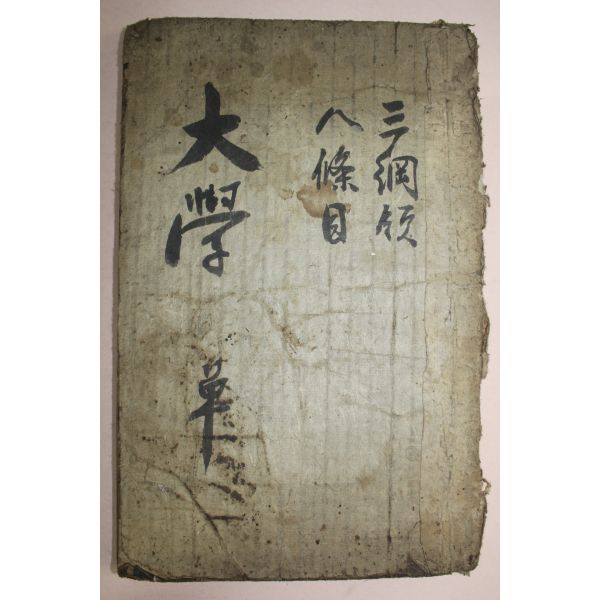 三綱領
八條目
大學 單